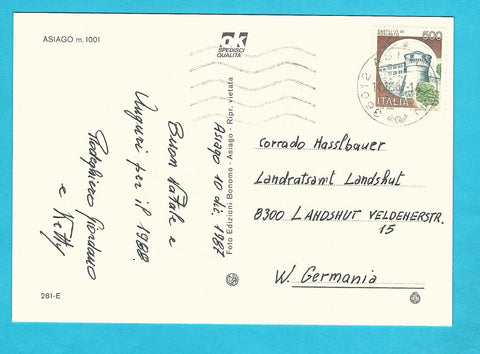 ASIAGO m. 1001
OK
SPEDISCI
QUALITÀ
Asiago 10 dic. 1987
Buon Natale e
Auguri per il 1988.
Giordano
e Ketty
Foto Edizioni Bonomo - Asiago - Ripr. vietata
281-E
500
ITALIA
36012 ASIAGO
Corrado Hasslbauer
Landratsamt Landshut
8300 LANDSHUT VELDENERSTR.
15
W. Germania